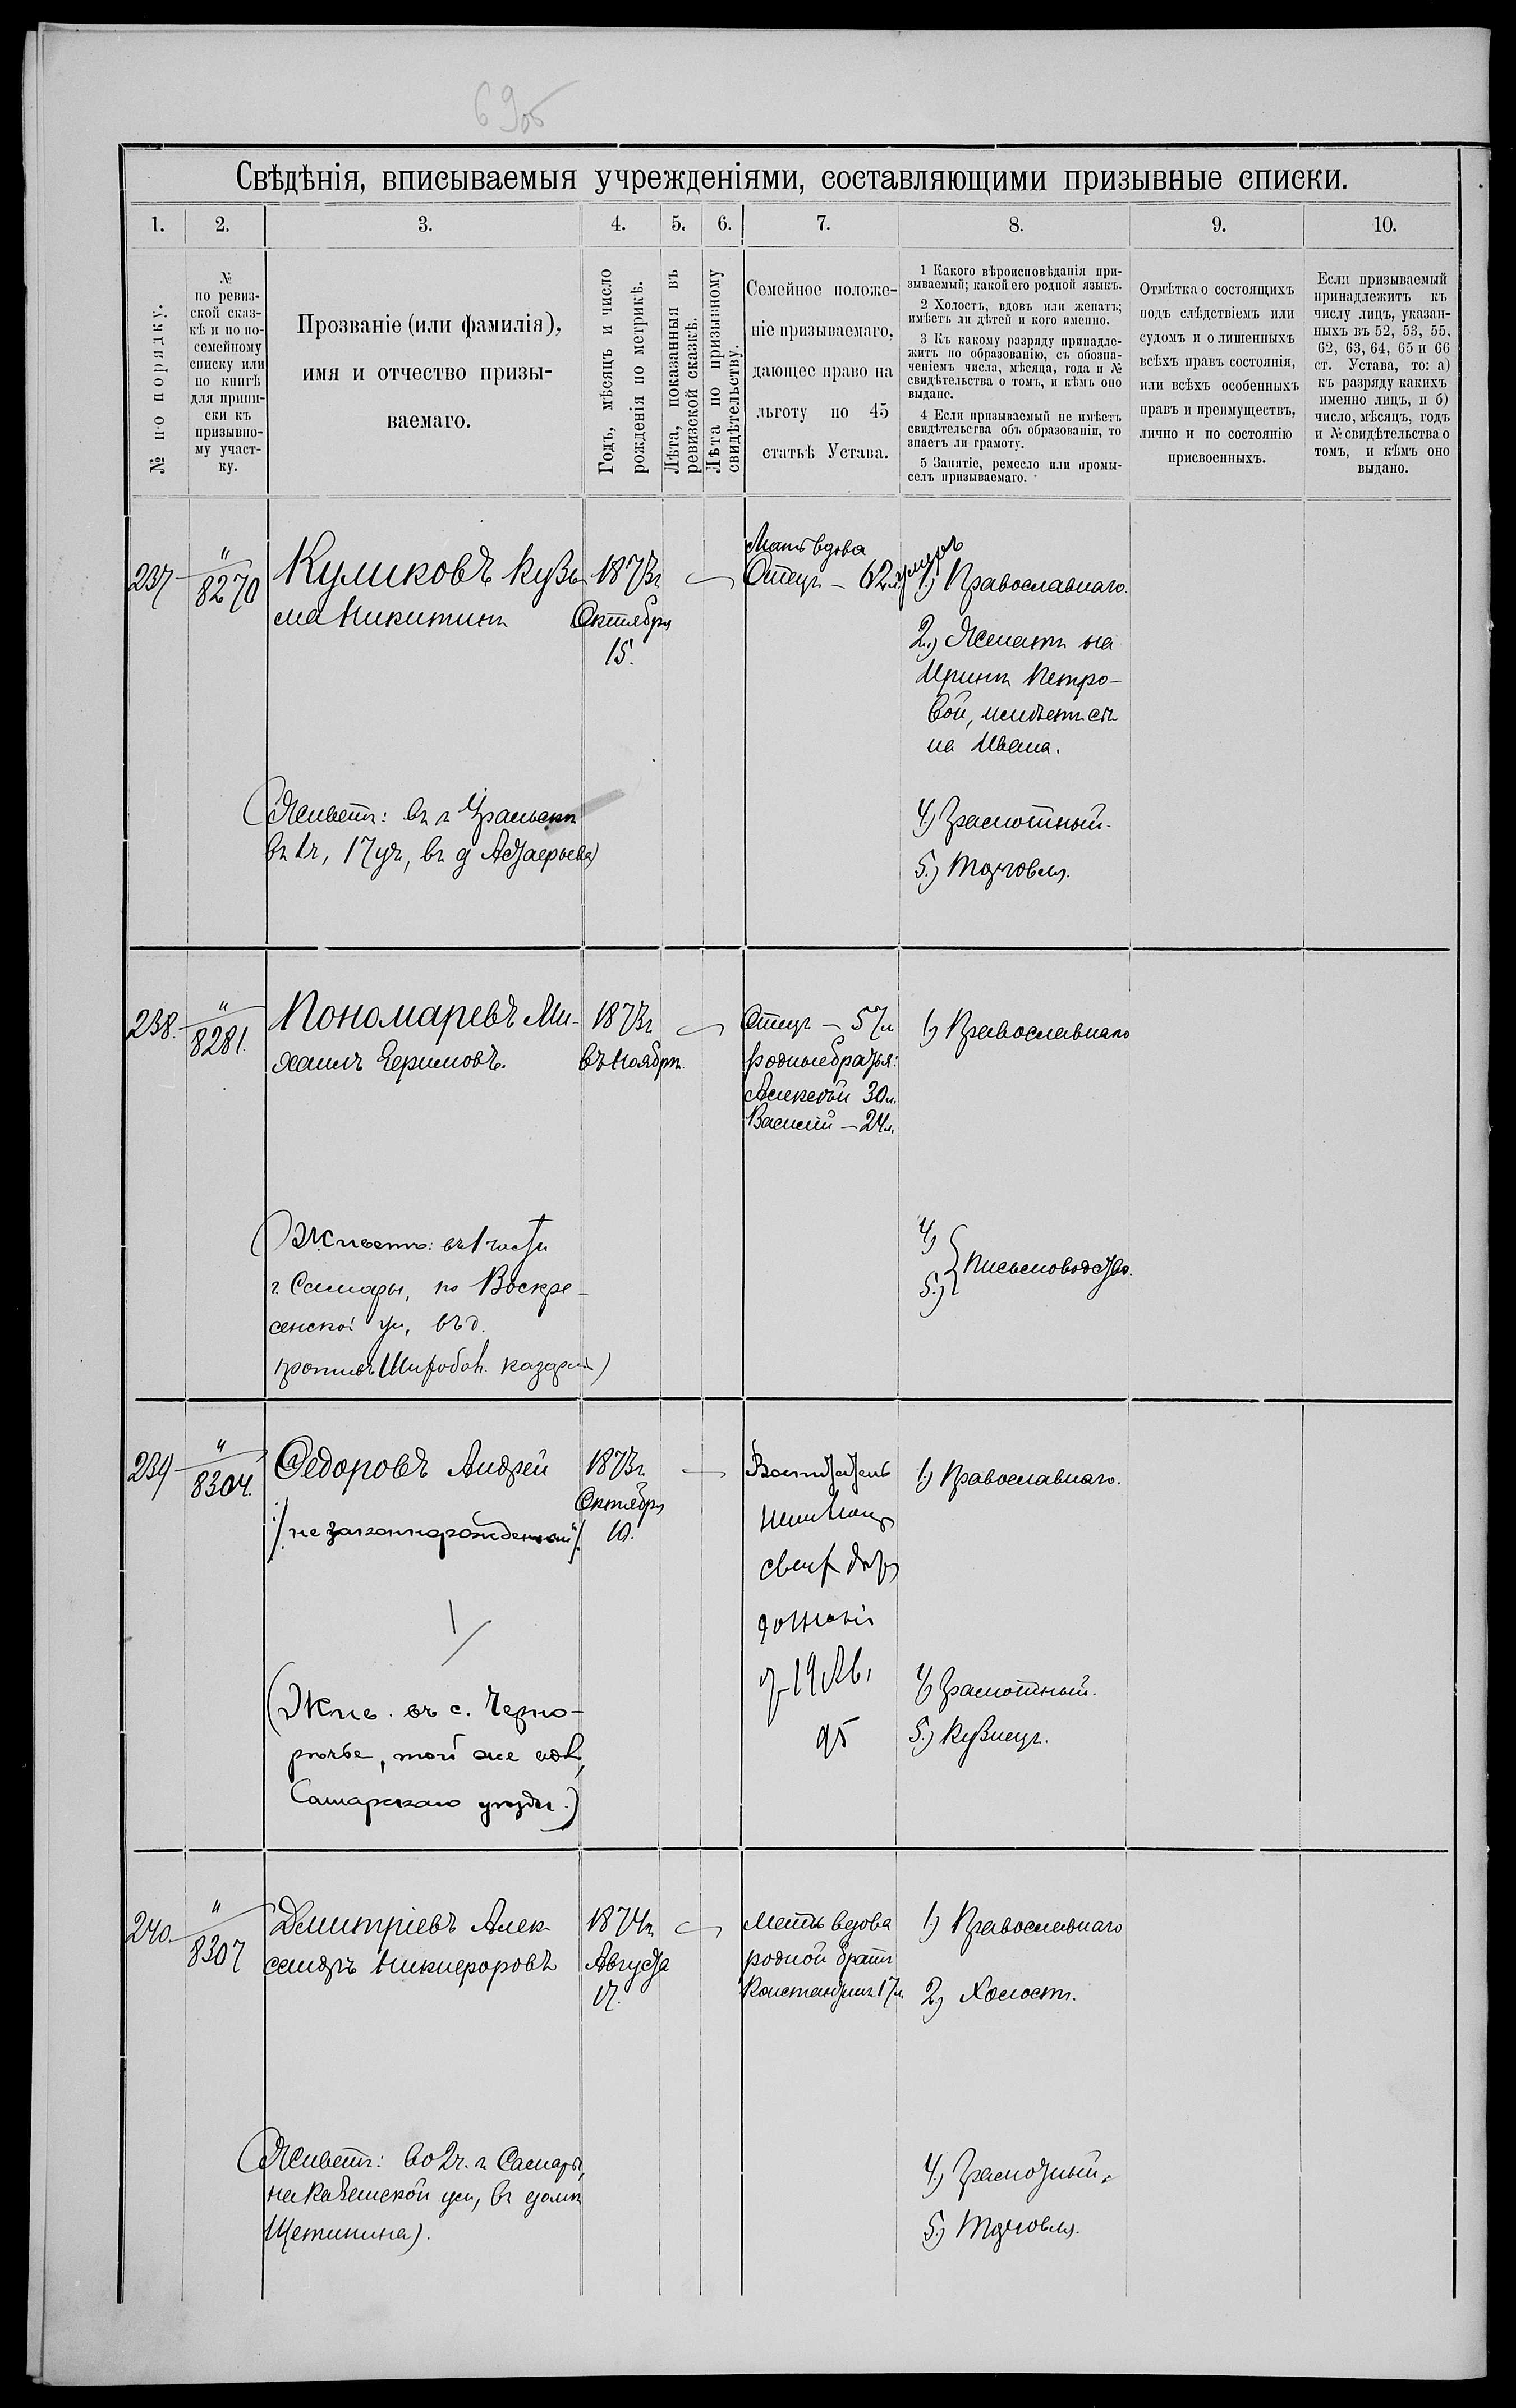 69об
Свѣдѣнія, вписываемыя учрежденіями, составляющими призывные списки.
1. 2. 3. 4. 5. 6. 7. 8. 9. 10.
№ по порядку.
№
по ревиз-
ской сказ-
кѣ и по по-
семейному
списку или
по книгѣ
для припи-
ски къ
призывно-
му участ-
ку.
Прозваніе (или фамилія),
имя и отчество призы-
ваемаго.
Годъ, мѣсяцъ и число
рожденія по метрикѣ.
Лѣта, показанныя въ
ревизской сказкѣ.
Лѣта по призывному
свидѣтельству.
Семейное положе-
ніе призываемаго,
дающее право на
льготу по 45
статьѣ Устава.
1 Какого вѣроисповѣданія при-
зываемый; какой его родной языкъ.
2 Холостъ, вдовъ или женатъ;
имѣетъ ли дѣтей и кого именно.
3 Къ какому разряду принадле-
житъ по образованію, съ обозна-
ченіемъ числа, мѣсяца, года и №
свидѣтельства о томъ, и кѣмъ оно
выдано.
4 Если призываемый не имѣетъ
свидѣтельства объ образованіи, то
знаетъ ли грамоту.
5 Занятіе, ремесло или промы-
селъ призываемаго.
Отмѣтка о состоящихъ
подъ слѣдствіемъ или
судомъ и о лишенныхъ
всѣхъ правъ состоянія,
или всѣхъ особенныхъ
правъ и преимуществъ,
лично и по состоянію
присвоенныхъ.
Если призываемый
принадлежитъ къ
числу лицъ, указан-
ныхъ въ 52, 53, 55,
62, 63, 64, 65 и 66
ст. Устава, то: а)
къ разряду какихъ
именно лицъ, и б)
число, мѣсяцъ, годъ
и № свидѣтельства о
томъ, и кѣмъ оно
выдано.
237
"
8270
Куликовъ Кузь-
ма Никитинъ
1873г
Октября
15.
Мать вдова
Отецъ – 62 л. умеръ
1.) Православнаго.
2.) Женатъ на
Иринѣ Петро-
вой, имѣетъ сы-
на Ивана.
4.) Грамотный.
5.) Торговля.
(Живетъ: въ г Уральскѣ
въ 1ч, 17 уч, въ д
238.
"
8281.
Пономаревъ Ми-
хаилъ Ефимовъ.
1873г
въ Ноябрѣ.
Отецъ – 57л
родные братья:
Алексѣй 30л.
Василій – 24л.
1) Православнаго
4)
5.)
Письмоводство.
(Живетъ: въ 1 части
г. Самары, по Воскре-
сенской ул, въ д.
противъ казармъ)
239
"
8304.
Федоровъ Андрей
/незаконнорожденный/
1873г
Октября
10.
1.) Православнаго.
19
95
4) Грамотный.
5.) Кузнецъ.
(Жив. въ с. Черно-
рѣчье, той же вол,
Самарскаго уѣзда.)
240.
"
8307
Дмитріевъ Алек-
сандръ Никифоровъ
1874г
Августа
17.
Мать вдова
родной братъ
Константинъ 17л.
1.) Православнаго
2.) Холостъ.
4.) Грамотный.
5.) Торговля.
(Живетъ: во 2ч. г. Самары,
на Казанской ул, въ домѣ
Щетинина).